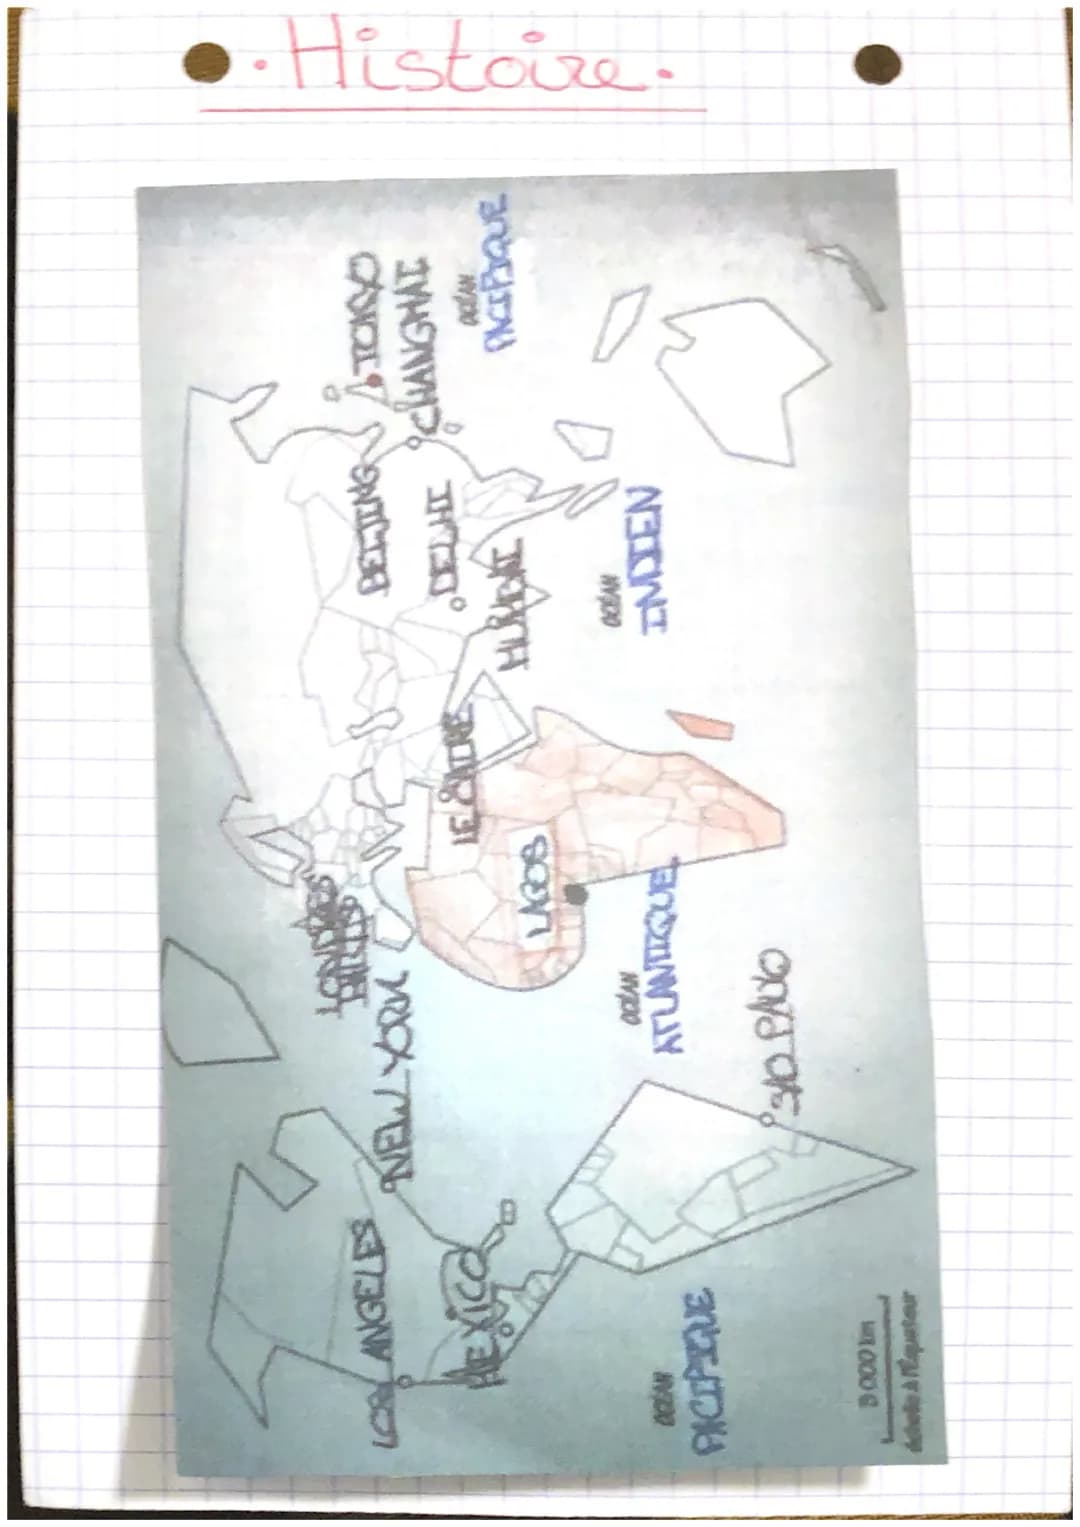 . Histoire .
TOKYO
CHANGHAI
OCÉAN
PACIFIQUE
BEIJING
DELHI
MUMBAI
OCÉAN
INDIEN
LE CAIRE
LAGOS
LONDRES
PARIS
NEW YORK
OCÉAN
ATLANTIQUE
SAO PAULO
LOS ANGELES
MEXICO
OCÉAN
PACIFIQUE
3 000 km
échelle à l'Équateur